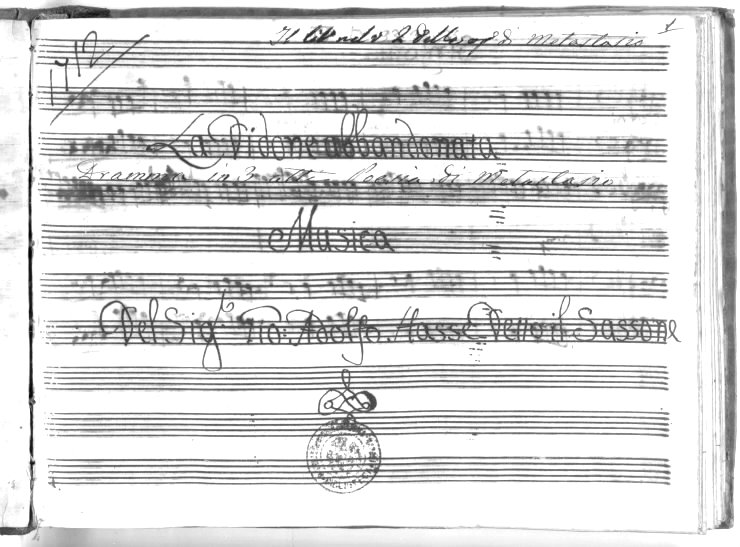 1
Il di Metastasio
La Didone abbandonata
Dramma in 3 atti Poesia di Metastasio
Musica
Del Sig.r Gio: Adolfo Hasse Detto il Sassone